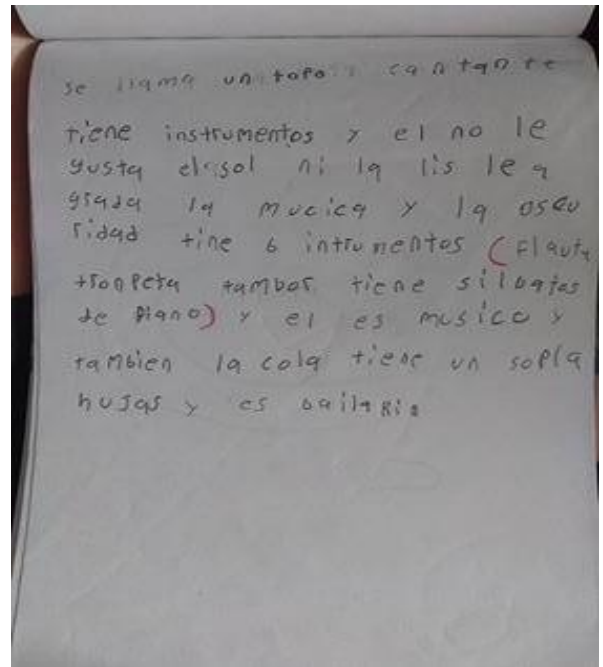 se llama un topo cantante
tiene instrumentos y el no le
gusta el sol ni la lis le a
grada la mucica y la oscu
ridad tine 6 intrumentos (flauta
tronpeta tambor tiene silbatos
de piano) y el es musico y
tambien la cola tiene un sopla
hujas y es bailarin